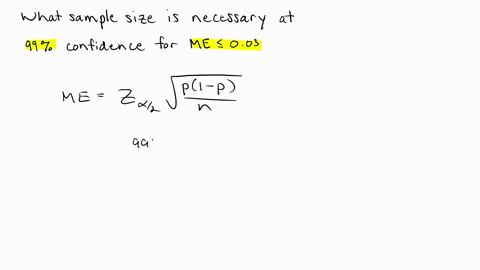 What sample size is necessary at
99% confidence for ME ≤ 0.03
ME = Z_{α/2} √(p(1-p)/n)
99.